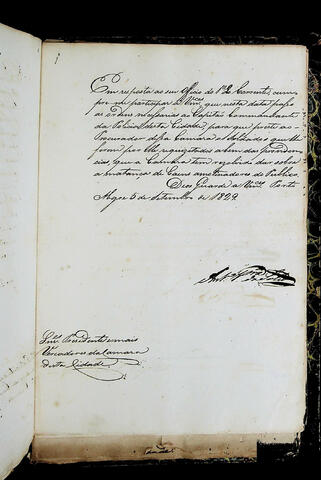 Em resposta ao seu Officio de 1º do Corrente, cum
pre me participar a Vmces que nesta data passo
as ordens necessarias ao Capitão Commandante
da Policia desta Cidade, para que preste ao
Procurador dessa Camara os Soldados que lhe
forem por elle requizitados a bem das providen
cias, que a Camara tem recebido sobre
a matança de Caens amofinadores do Publico.
Deos Guarde a Vmces Porto
Alegre 5 de Setembro de 1829
Snrs. Presidente e mais
Vereadores da Camara
desta Cidade